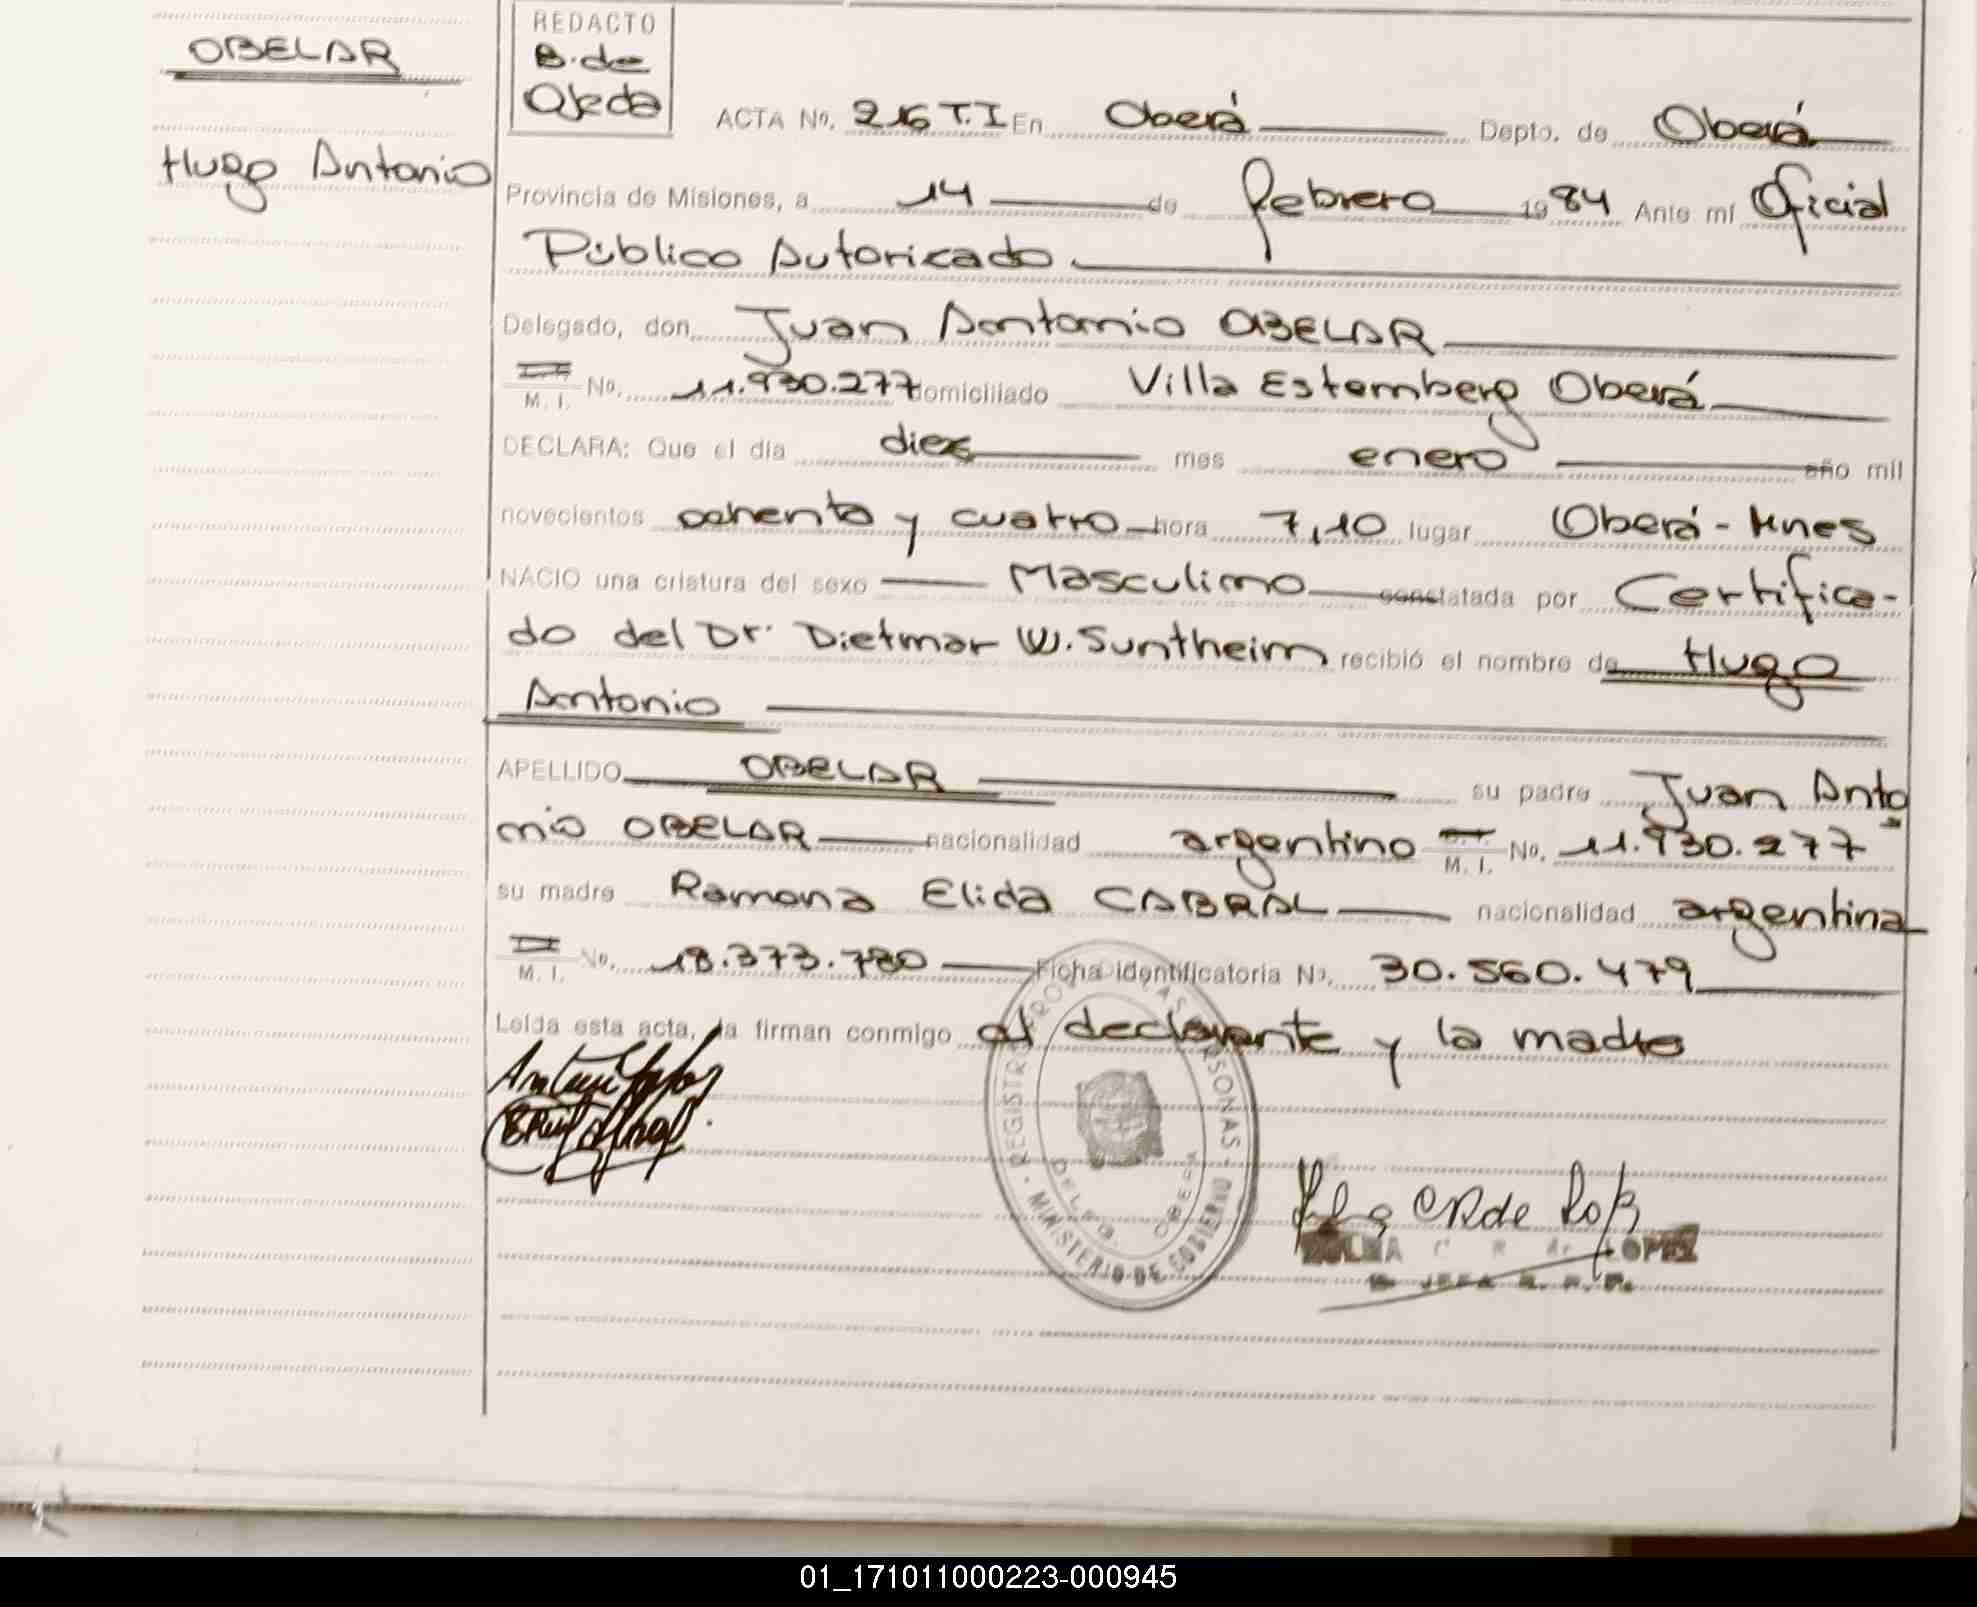 OBELAR
Hugo Antonio
REDACTO
B. de
Ojeda
ACTA No. 216 T.I En Oberá Depto. de Oberá
Provincia de Misiones, a 14 de febrero 1984 Ante mí Oficial
Público Autorizado
Delegado, don Juan Antonio OBELAR
M. I. No. 11.930.277 domiciliado Villa Estemberg Oberá
DECLARA: Que el día diez mes enero año mil
novecientos ochenta y cuatro hora 7,10 lugar Oberá - Mnes
NACIO una criatura del sexo Masculino constatada por Certifica-
do del Dr. Dietmar W. Suntheim recibió el nombre de Hugo
Antonio
APELLIDO OBELAR su padre Juan Anto
nio OBELAR nacionalidad argentino M. I. No. 11.930.277
su madre Ramona Elida CABRAL nacionalidad argentina
M. I. No. 18.373.780 Ficha identificatoria No. 30.560.479
Leída esta acta, la firman conmigo el declarante y la madre
REGISTRO PRO AS PERSONAS
MINISTERIO DE GOBIERNO
DELEG. OBERA
C R de LOPEZ
JEFA R. P. P.
01_171011000223-000945